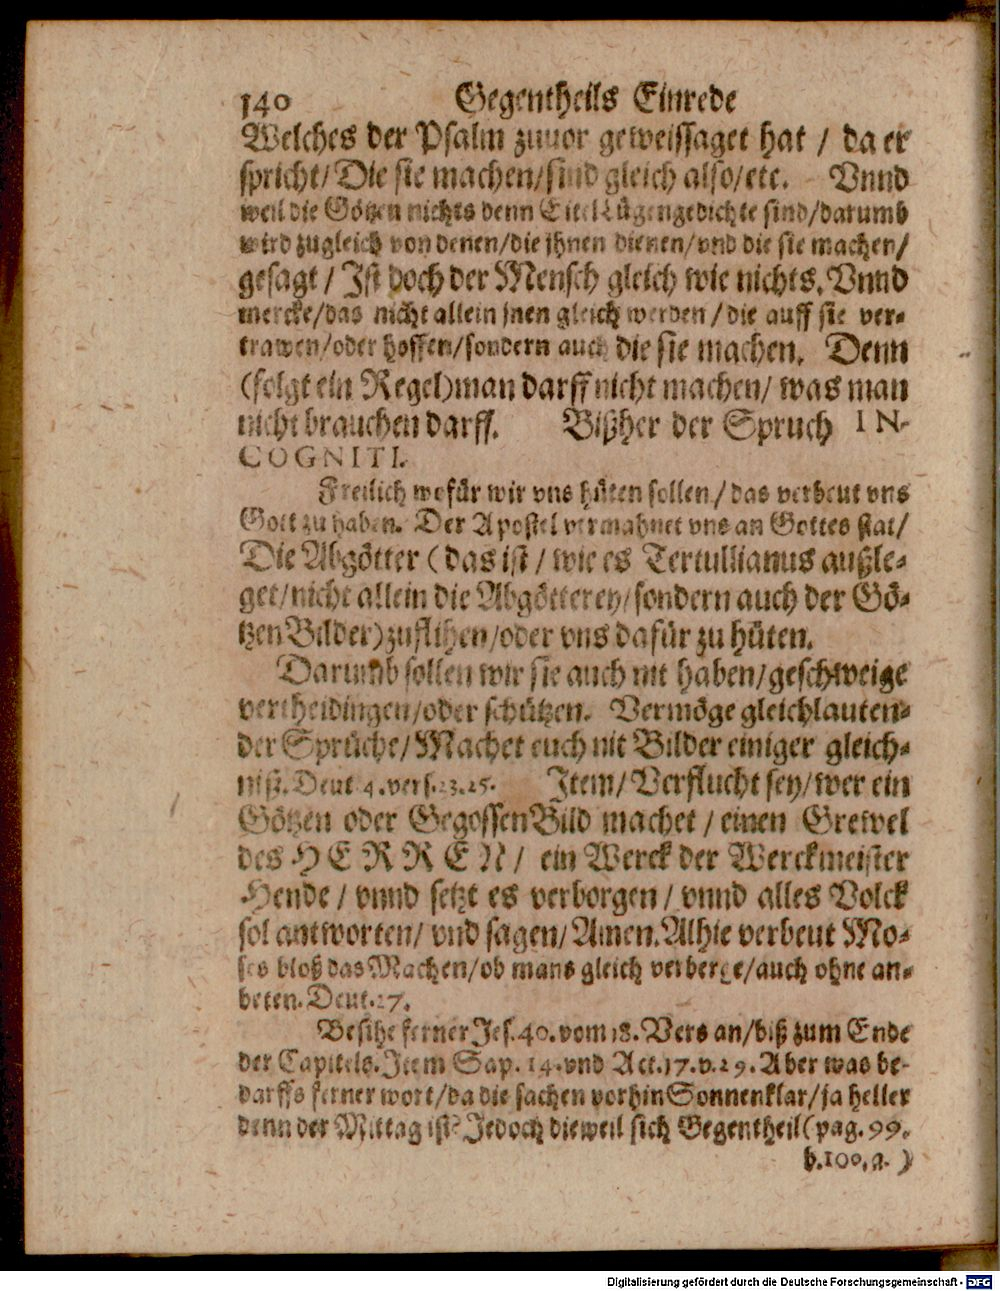 140 Gegentheils Einrede
Welches der Psalm zuuor geweissaget hat / da er
spricht/ Die sie machen/sind gleich also/etc. Vnnd
weil die Götzen nichts denn Eitel Lügengedichte sind/darumb
wird zugleich von denen/die jhnen dienen/vnd die sie machen/
gesagt / Ist doch der Mensch gleich wie nichts. Vnnd
mercke/das nicht allein jnen gleich werden / die auff sie ver-
trawen/oder hoffen/sondern auch die sie machen. Denn
(folgt ein Regel) man darff nicht machen/ was man
nicht brauchen darff. Bißher der Spruch IN-
COGNITI.
Freilich wofür wir vns hüten sollen / das verbeut vns
Gott zu haben. Der Apostel vermahnet vns an Gottes stat/
Die Abgötter ( das ist / wie es Tertullianus außle-
get/nicht allein die Abgötterey/sondern auch der Gö-
tzen Bilder) zuflihen/oder vns dafür zu hüten.
Darumb sollen wir sie auch nit haben/geschweige
vertheidingen/oder schützen. Vermöge gleichlauten-
der Sprüche/ Machet euch nit Bilder einiger gleich-
niß. Deut 4. vers. 23. 25. Item/ Verflucht sey/wer ein
Götzen oder Gegossen Bild machet / einen Grewel
des HERREN/ ein Werck der Werckmeister
Hende / vnnd setzt es verborgen / vnnd alles Volck
sol antworten/ vnd sagen/ Amen. Alhie verbeut Mo-
ses bloß das Machen/ob mans gleich verberge/auch ohne an-
beten. Deut. 27.
Besihe ferner Jes. 40. vom 18. Vers an/biß zum Ende
der Capitels. Item Sap. 14. vnd Act. 17. v. 29. Aber was be-
darffs ferner wort/da die sachen vorhin Sonnenklar/ja heller
denn der Mittag ist? Jedoch dieweil sich Gegentheil (pag. 99.
b. 100. a. )
Digitalisierung gefördert durch die Deutsche Forschungsgemeinschaft - DFG